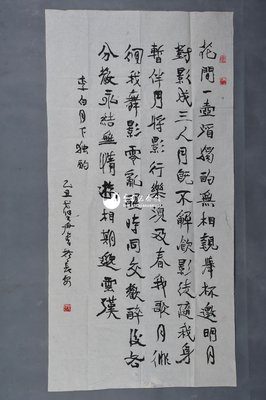 花間一壺酒獨酌無相親舉杯邀明月
對影成三人月既不解飲影徒隨我身
暫伴月將影行樂須及春我歌月徘
徊我舞影零亂醒時同交歡醉後各
分散永結無情遊相期邈雲漢
李白月下独酌
乙丑